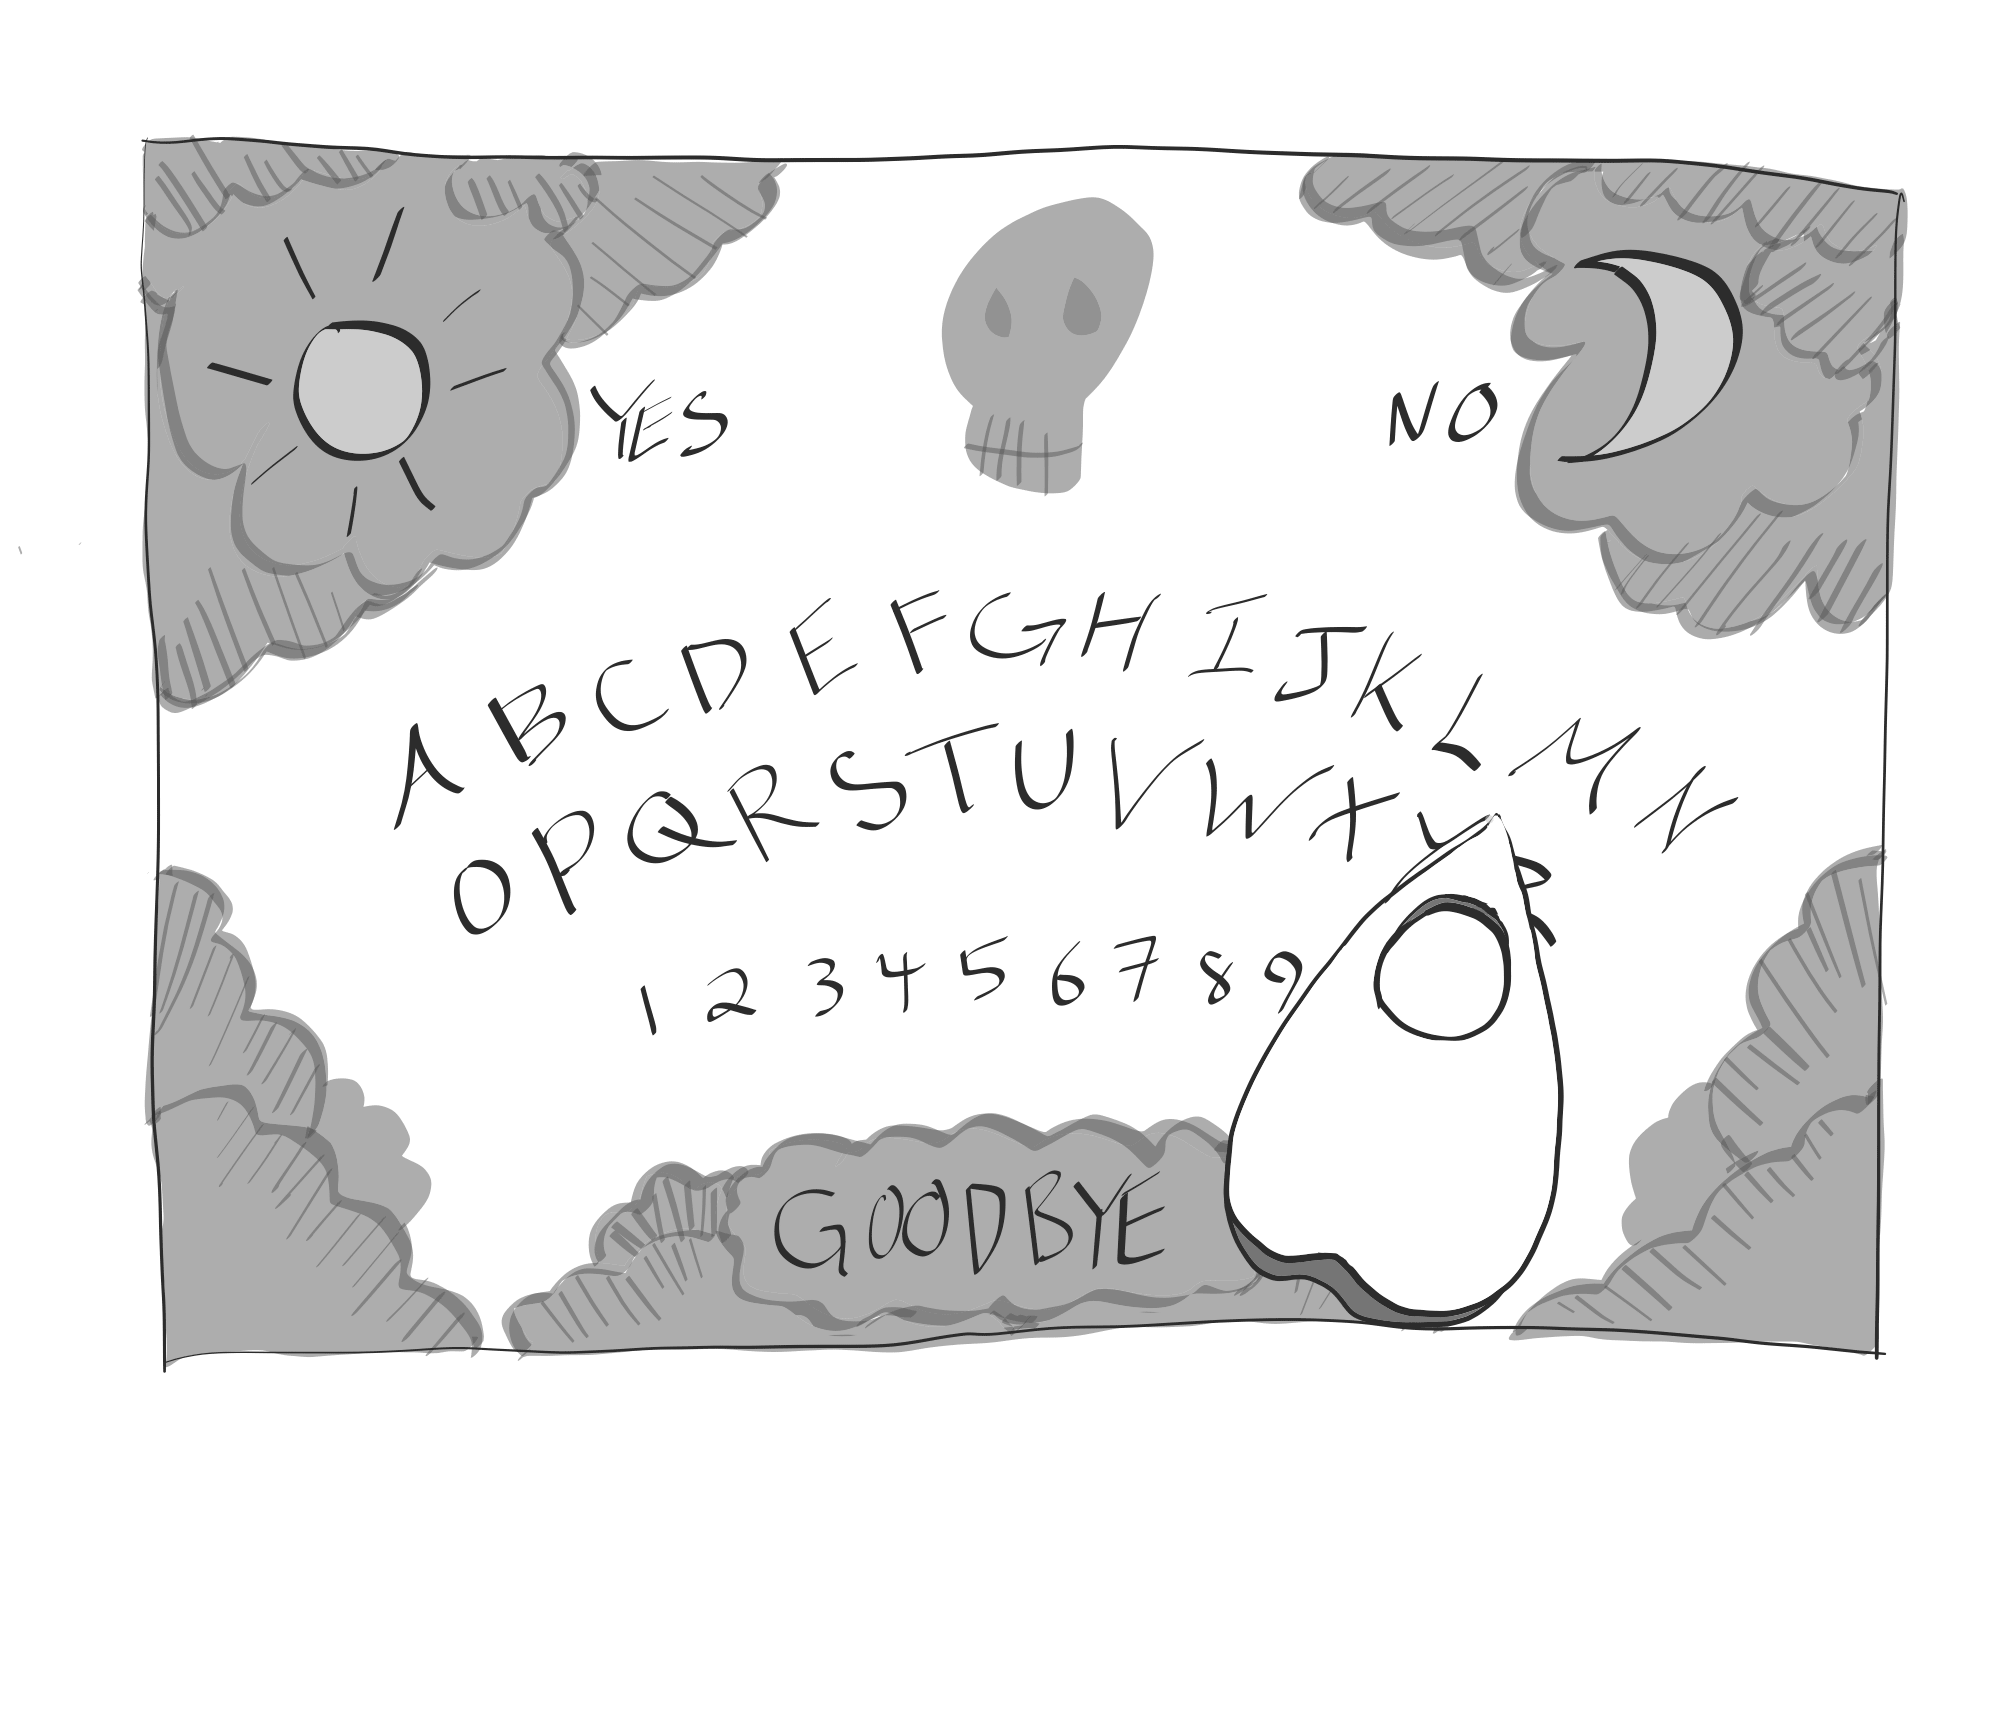 YES NO
A B C D E F G H I J K L M N
O P Q R S T U V W X
1 2 3 4 5 6 7 8 9
GOODBYE